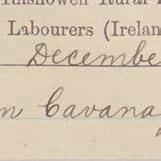 Inishowen Rural
Labourers (Irelan
Decembe
n Cavana